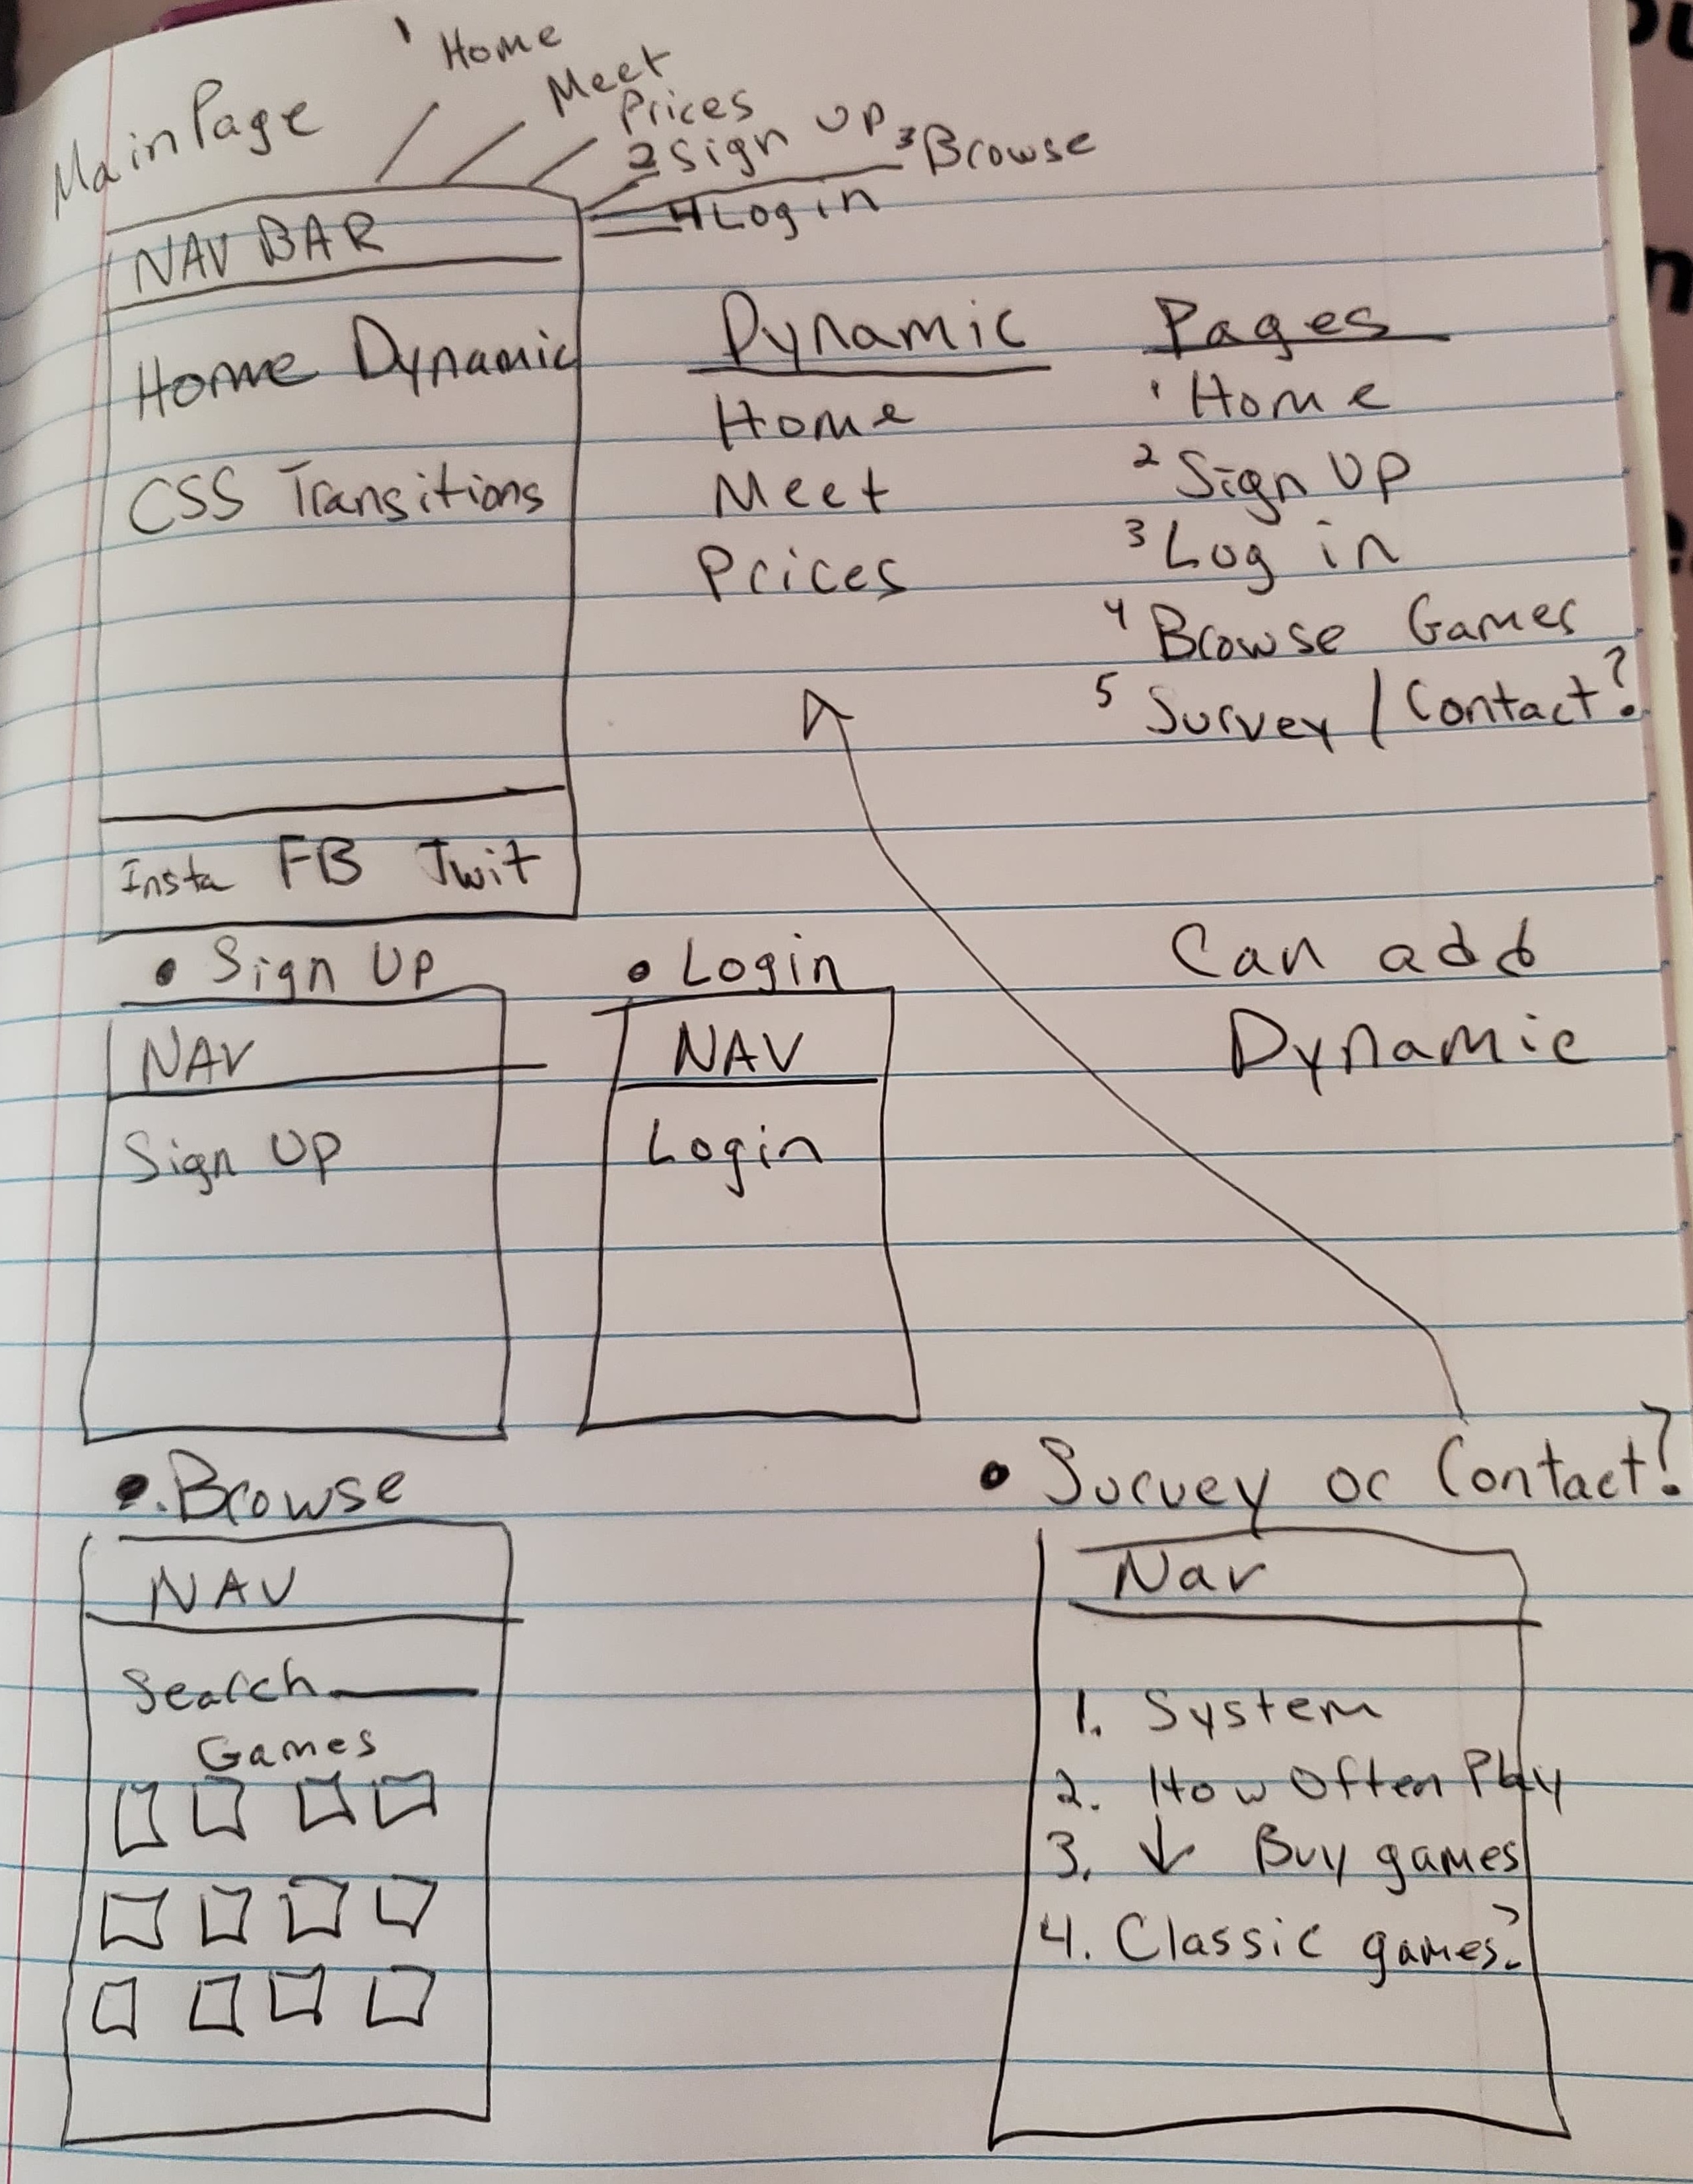 Main Page
1 Home
Meet
Prices
2 Sign UP
3 Browse
4 Login
NAV BAR
Home Dynamic
CSS Transitions
Insta FB Twit
Dynamic
Home
Meet
Prices
Pages
1 Home
2 Sign UP
3 Log in
4 Browse Games
5 Survey / Contact?
Can add
Dynamic
• Sign Up
NAV
Sign Up
• Login
NAV
Login
• Browse
NAV
Search
Games
• Survey or Contact?
Nav
1. System
2. How Often Play
3. ↓ Buy games
4. Classic games?